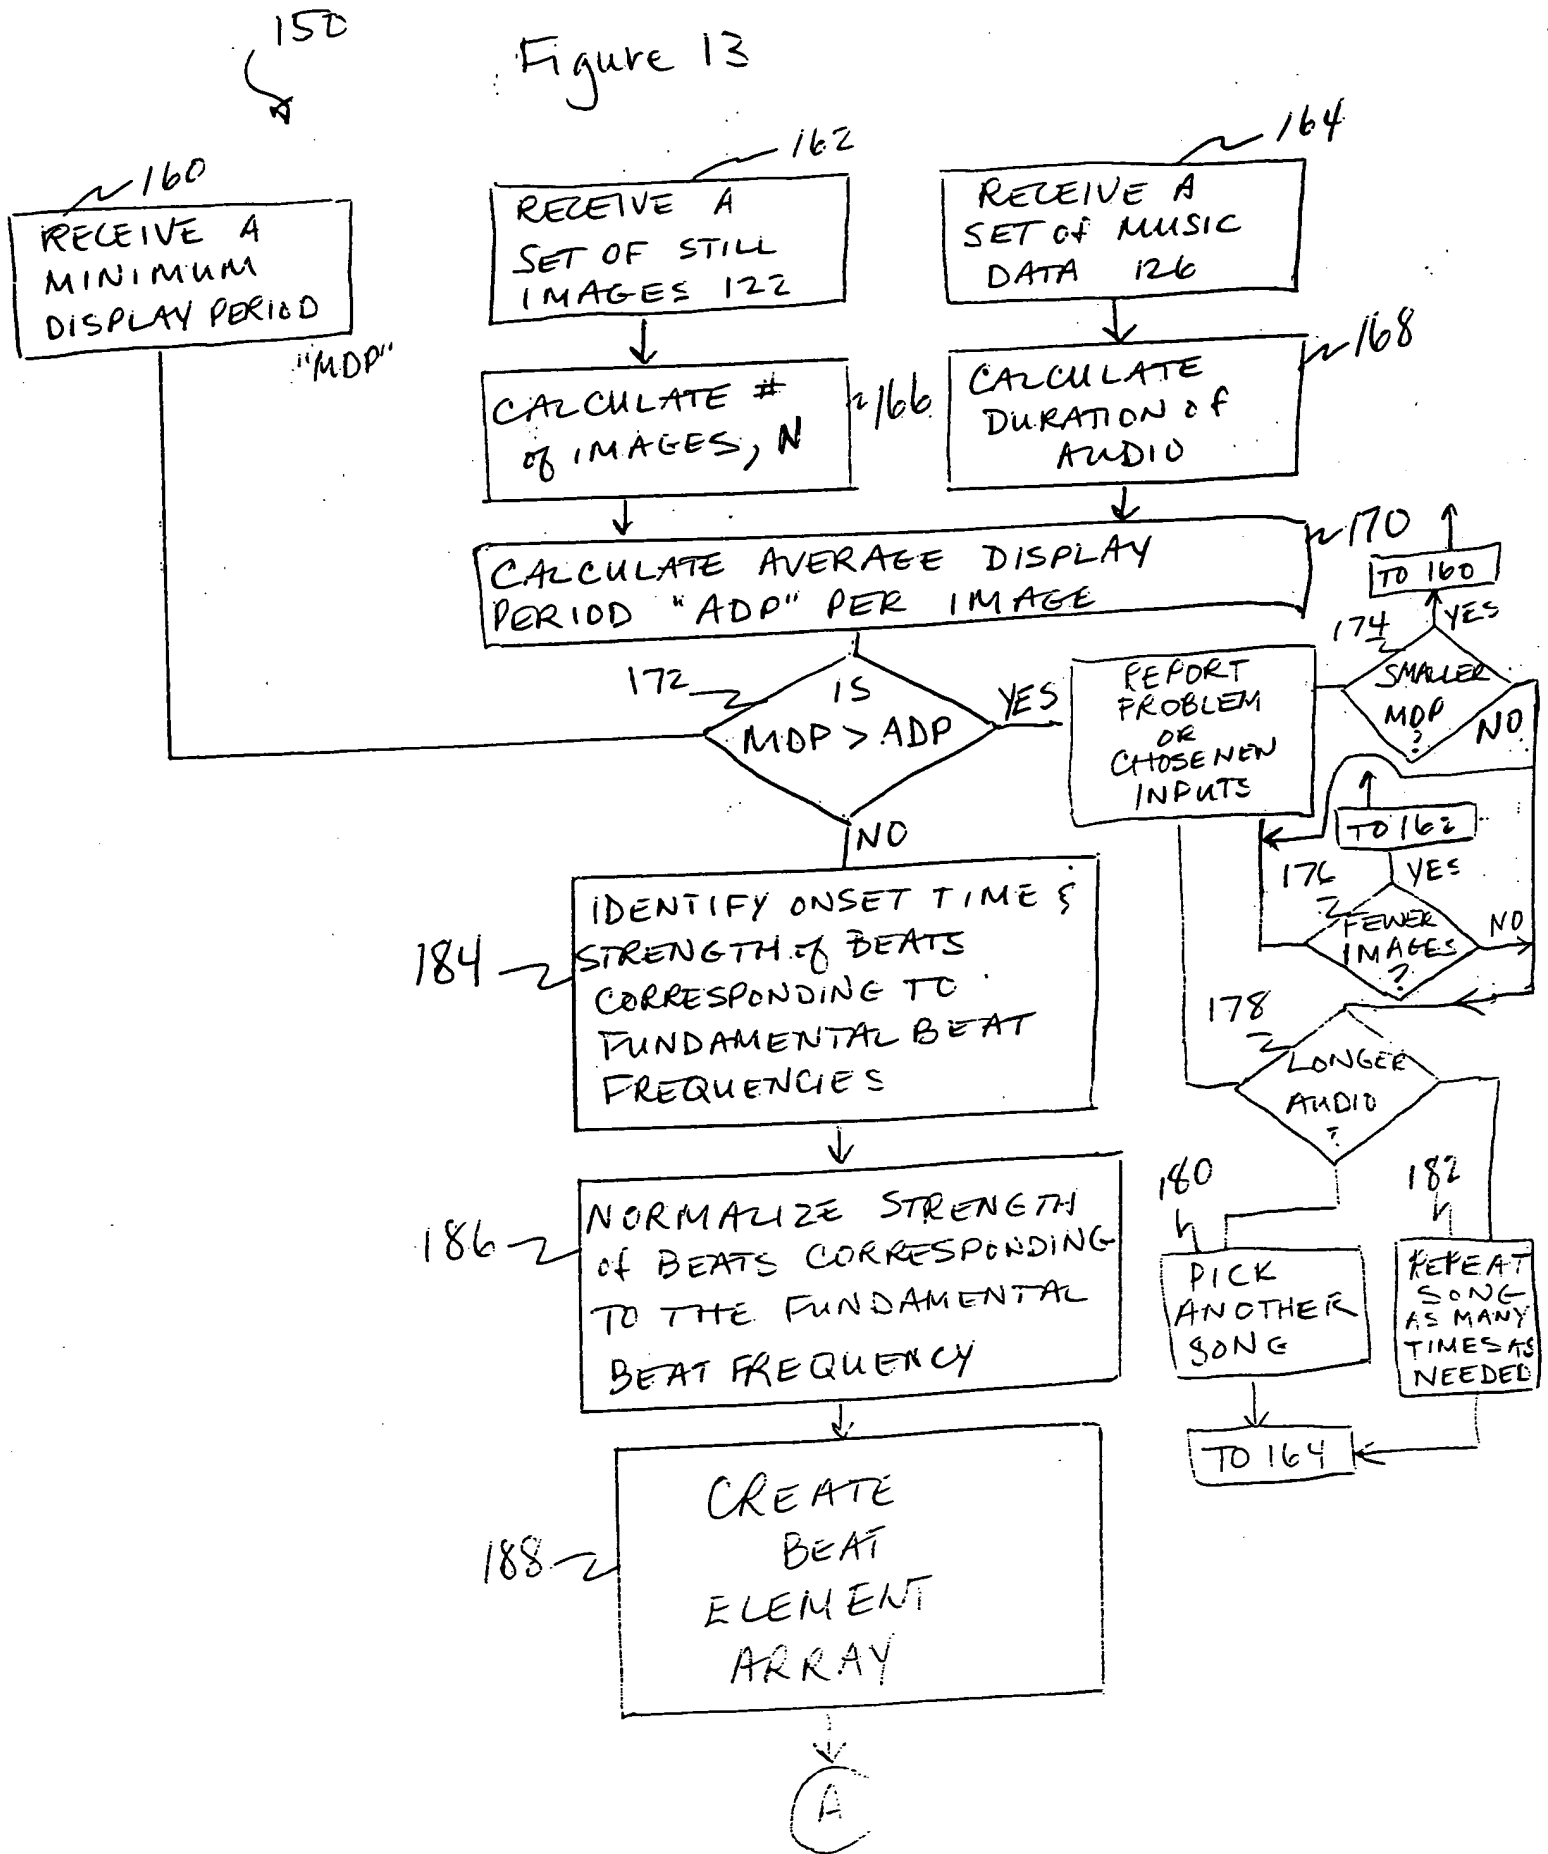 150
Figure 13
160
RECEIVE A
MINIMUM
DISPLAY PERIOD
"MDP"
162
RECEIVE A
SET OF STILL
IMAGES 122
164
RECEIVE A
SET of MUSIC
DATA 126
CALCULATE #
of IMAGES, N
166
CALCULATE
DURATION of
AUDIO
168
CALCULATE AVERAGE DISPLAY
PERIOD "ADP" PER IMAGE
170
TO 160
YES
174
SMALLER
MDP
?
NO
172
IS
MDP > ADP
YES
NO
REPORT
PROBLEM
OR
CHOSE NEW
INPUTS
TO 162
YES
176
FEWER
IMAGES
?
NO
178
LONGER
AUDIO
?
180
PICK
ANOTHER
SONG
182
REPEAT
SONG
AS MANY
TIMES AS
NEEDED
TO 164
184
IDENTIFY ONSET TIME &
STRENGTH of BEATS
CORRESPONDING TO
FUNDAMENTAL BEAT
FREQUENCIES
186
NORMALIZE STRENGTH
of BEATS CORRESPONDING
TO THE FUNDAMENTAL
BEAT FREQUENCY
188
CREATE
BEAT
ELEMENT
ARRAY
A